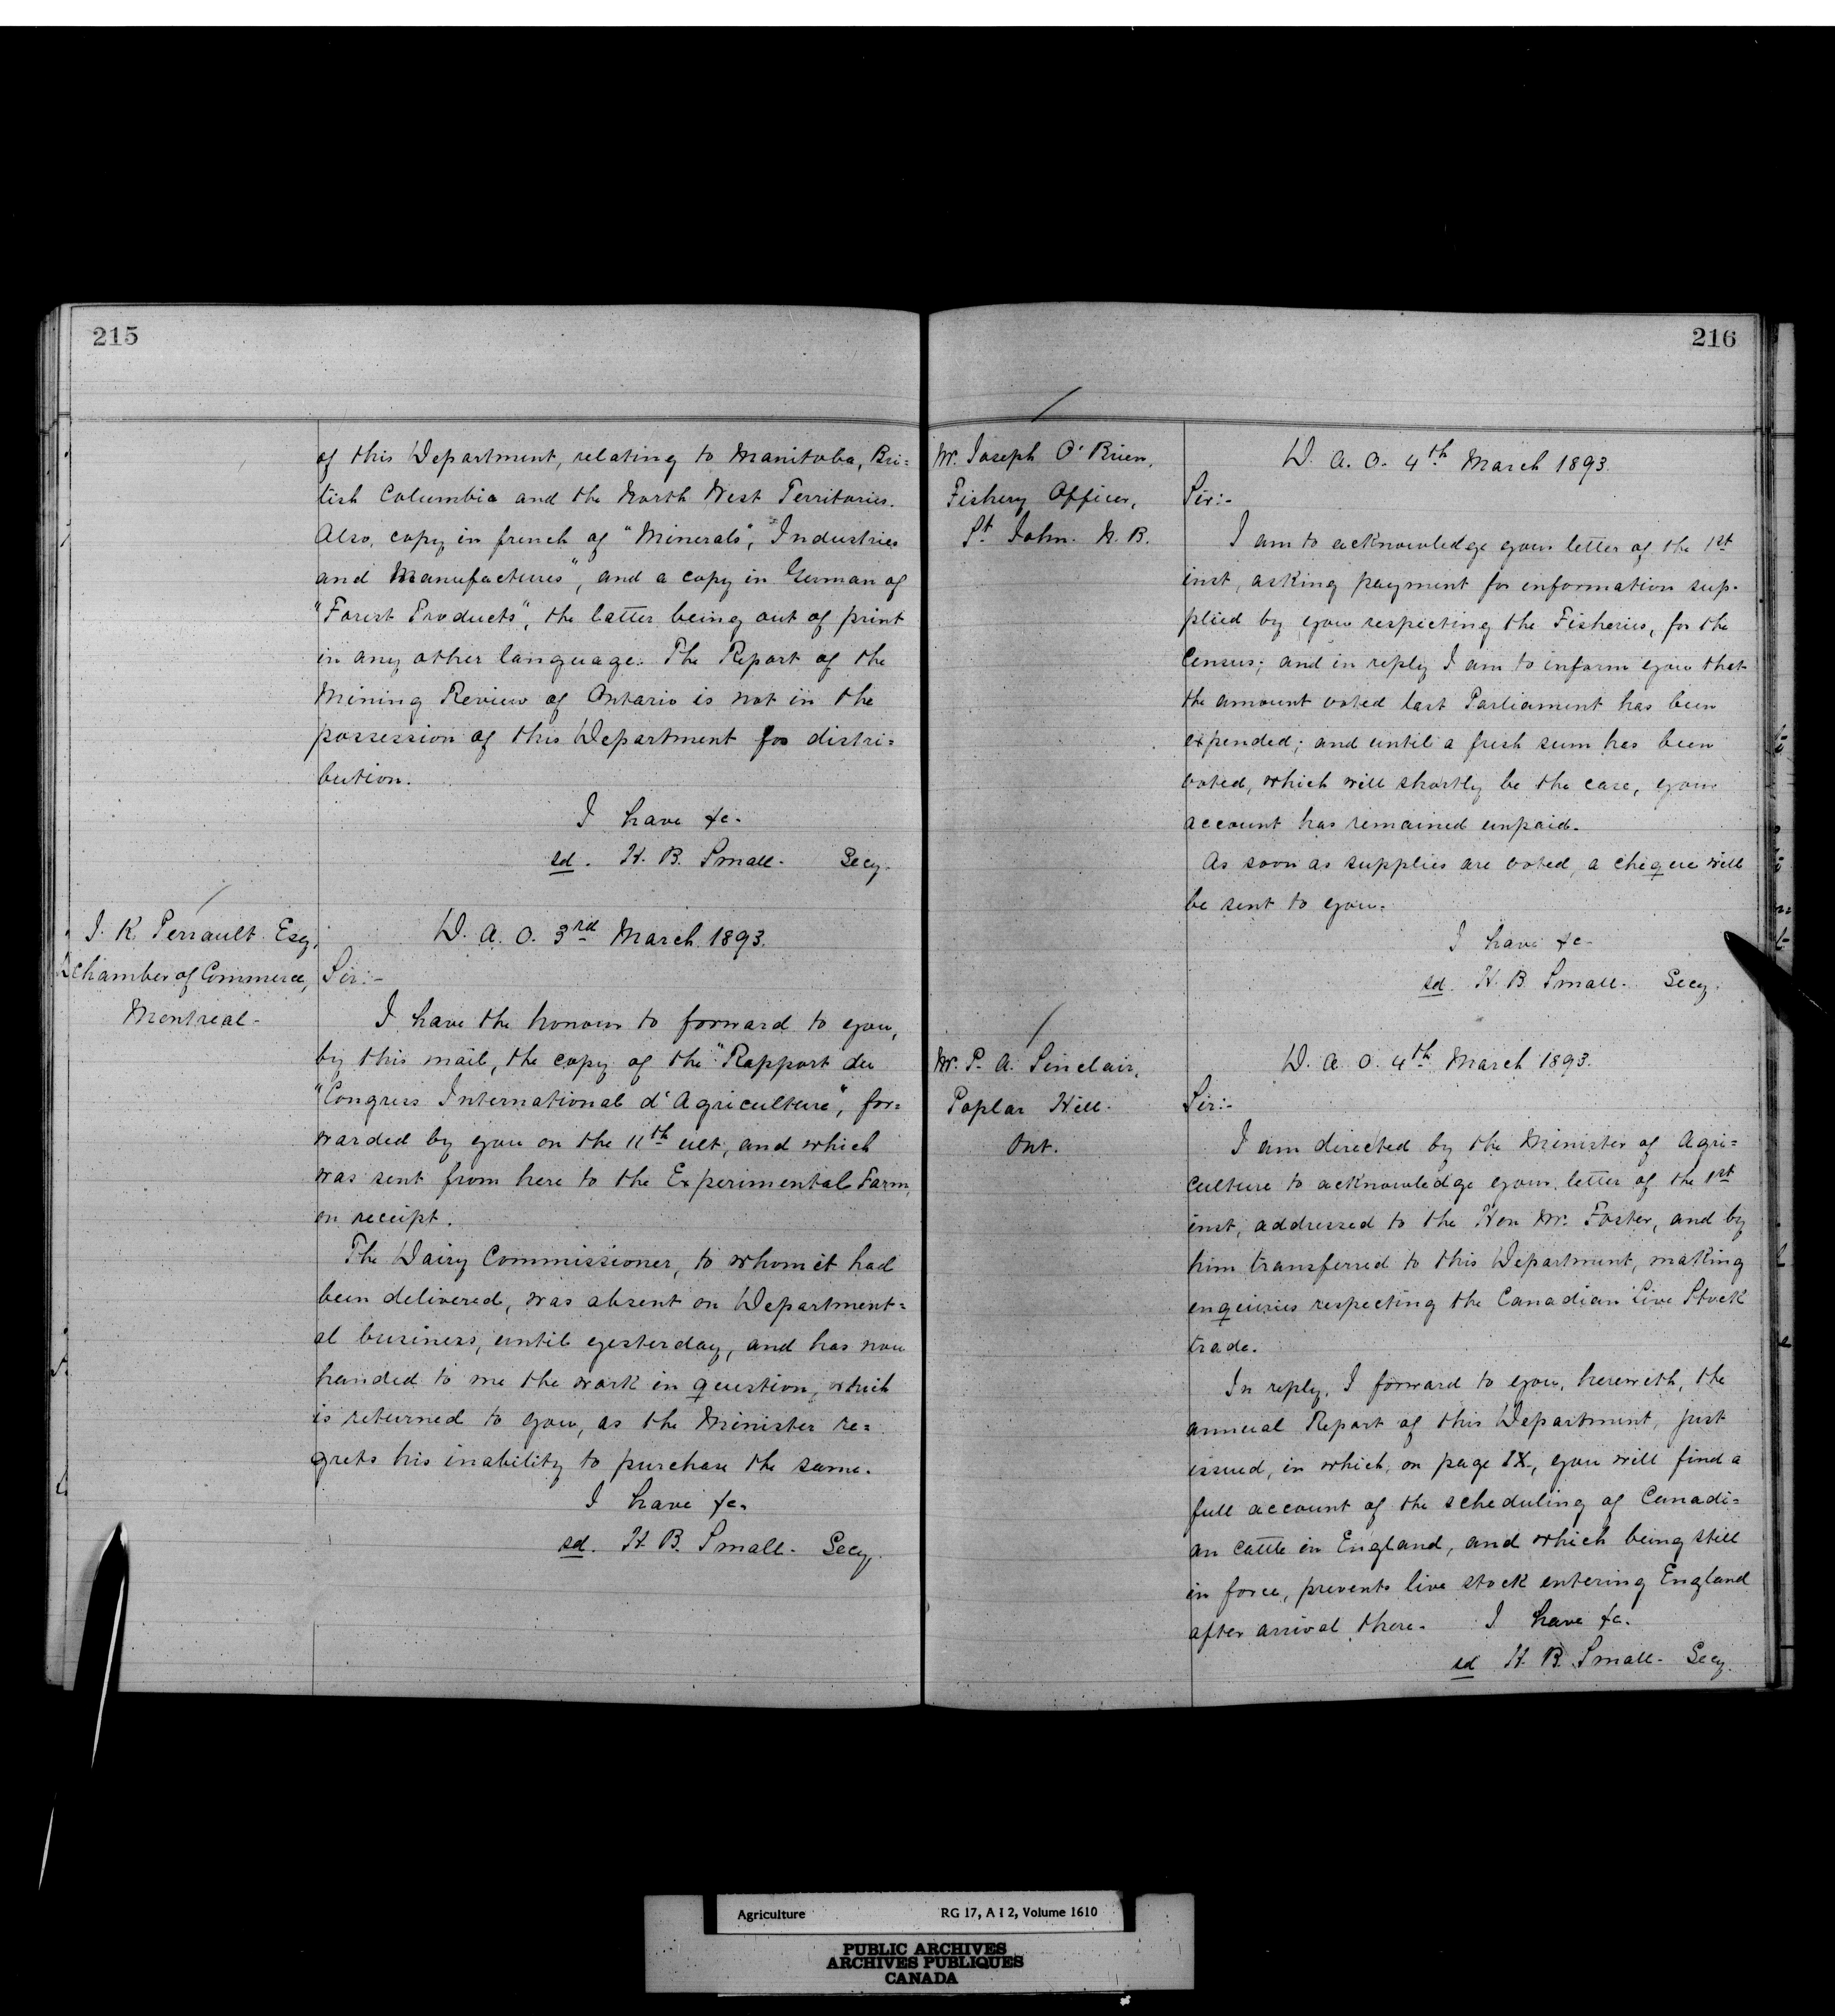 215
of this Department, relating to Manitoba, Bri=
tish Columbia and the North West Territories.
Also, copy in french of "Minerals", "Industries
and Manufactures", and a copy in German of
"Forest Products", the latter being out of print
in any other language. The Report of the
Mining Review of Ontario is not in the
possession of this Department for distri=
bution.
I have &c.
sd. H. B. Small. Secy.
J. K. Perrault Esq.
Chamber of Commerce,
Montreal.
D. A. O. 3rd March 1893.
Sir:-
I have the honour to forward to you,
by this mail, the copy of the "Rapport du
"Congress International d'Agriculture", for=
warded by you on the 11th ult, and which
was sent from here to the Experimental Farm,
on receipt.
The Dairy Commissioner, to whom it had
been delivered, was absent on Department=
al business, until yesterday, and has now
handed to me the work in question, which
is returned to you, as the Minister re=
grets his inability to purchase the same.
I have &c.
sd. H. B. Small. Secy.
216
Mr. Joseph O'Brien,
Fishery Officer,
St. John. N. B.
D. A. O. 4th March 1893.
Sir:-
I am to acknowledge your letter of the 1st
inst, asking payment for information sup-
plied by you respecting the Fisheries, for the
Census; and in reply I am to inform you that
the amount voted last Parliament has been
expended; and until a fresh sum has been
voted, which will shortly be the case, your
account has remained unpaid.
As soon as supplies are voted, a cheque will
be sent to you.
I have &c.
sd. H. B. Small. Secy.
Mr. P. A. Sinclair,
Poplar Hill.
Ont.
D. A. O. 4th March 1893.
Sir:-
I am directed by the Minister of Agri=
culture to acknowledge your letter of the 1st
inst, addressed to the Hon Mr. Foster, and by
him transferred to this Department, making
enquiries respecting the Canadian Live Stock
trade.
In reply, I forward to you, herewith, the
annual Report of this Department, just
issued, in which, on page IX, you will find a
full account of the scheduling of Canadi=
an cattle in England, and which being still
in force, prevents live stock entering England
after arrival there. I have &c.
sd H. B. Small. Secy.
Agriculture RG 17, A I 2, Volume 1610
PUBLIC ARCHIVES
ARCHIVES PUBLIQUES
CANADA